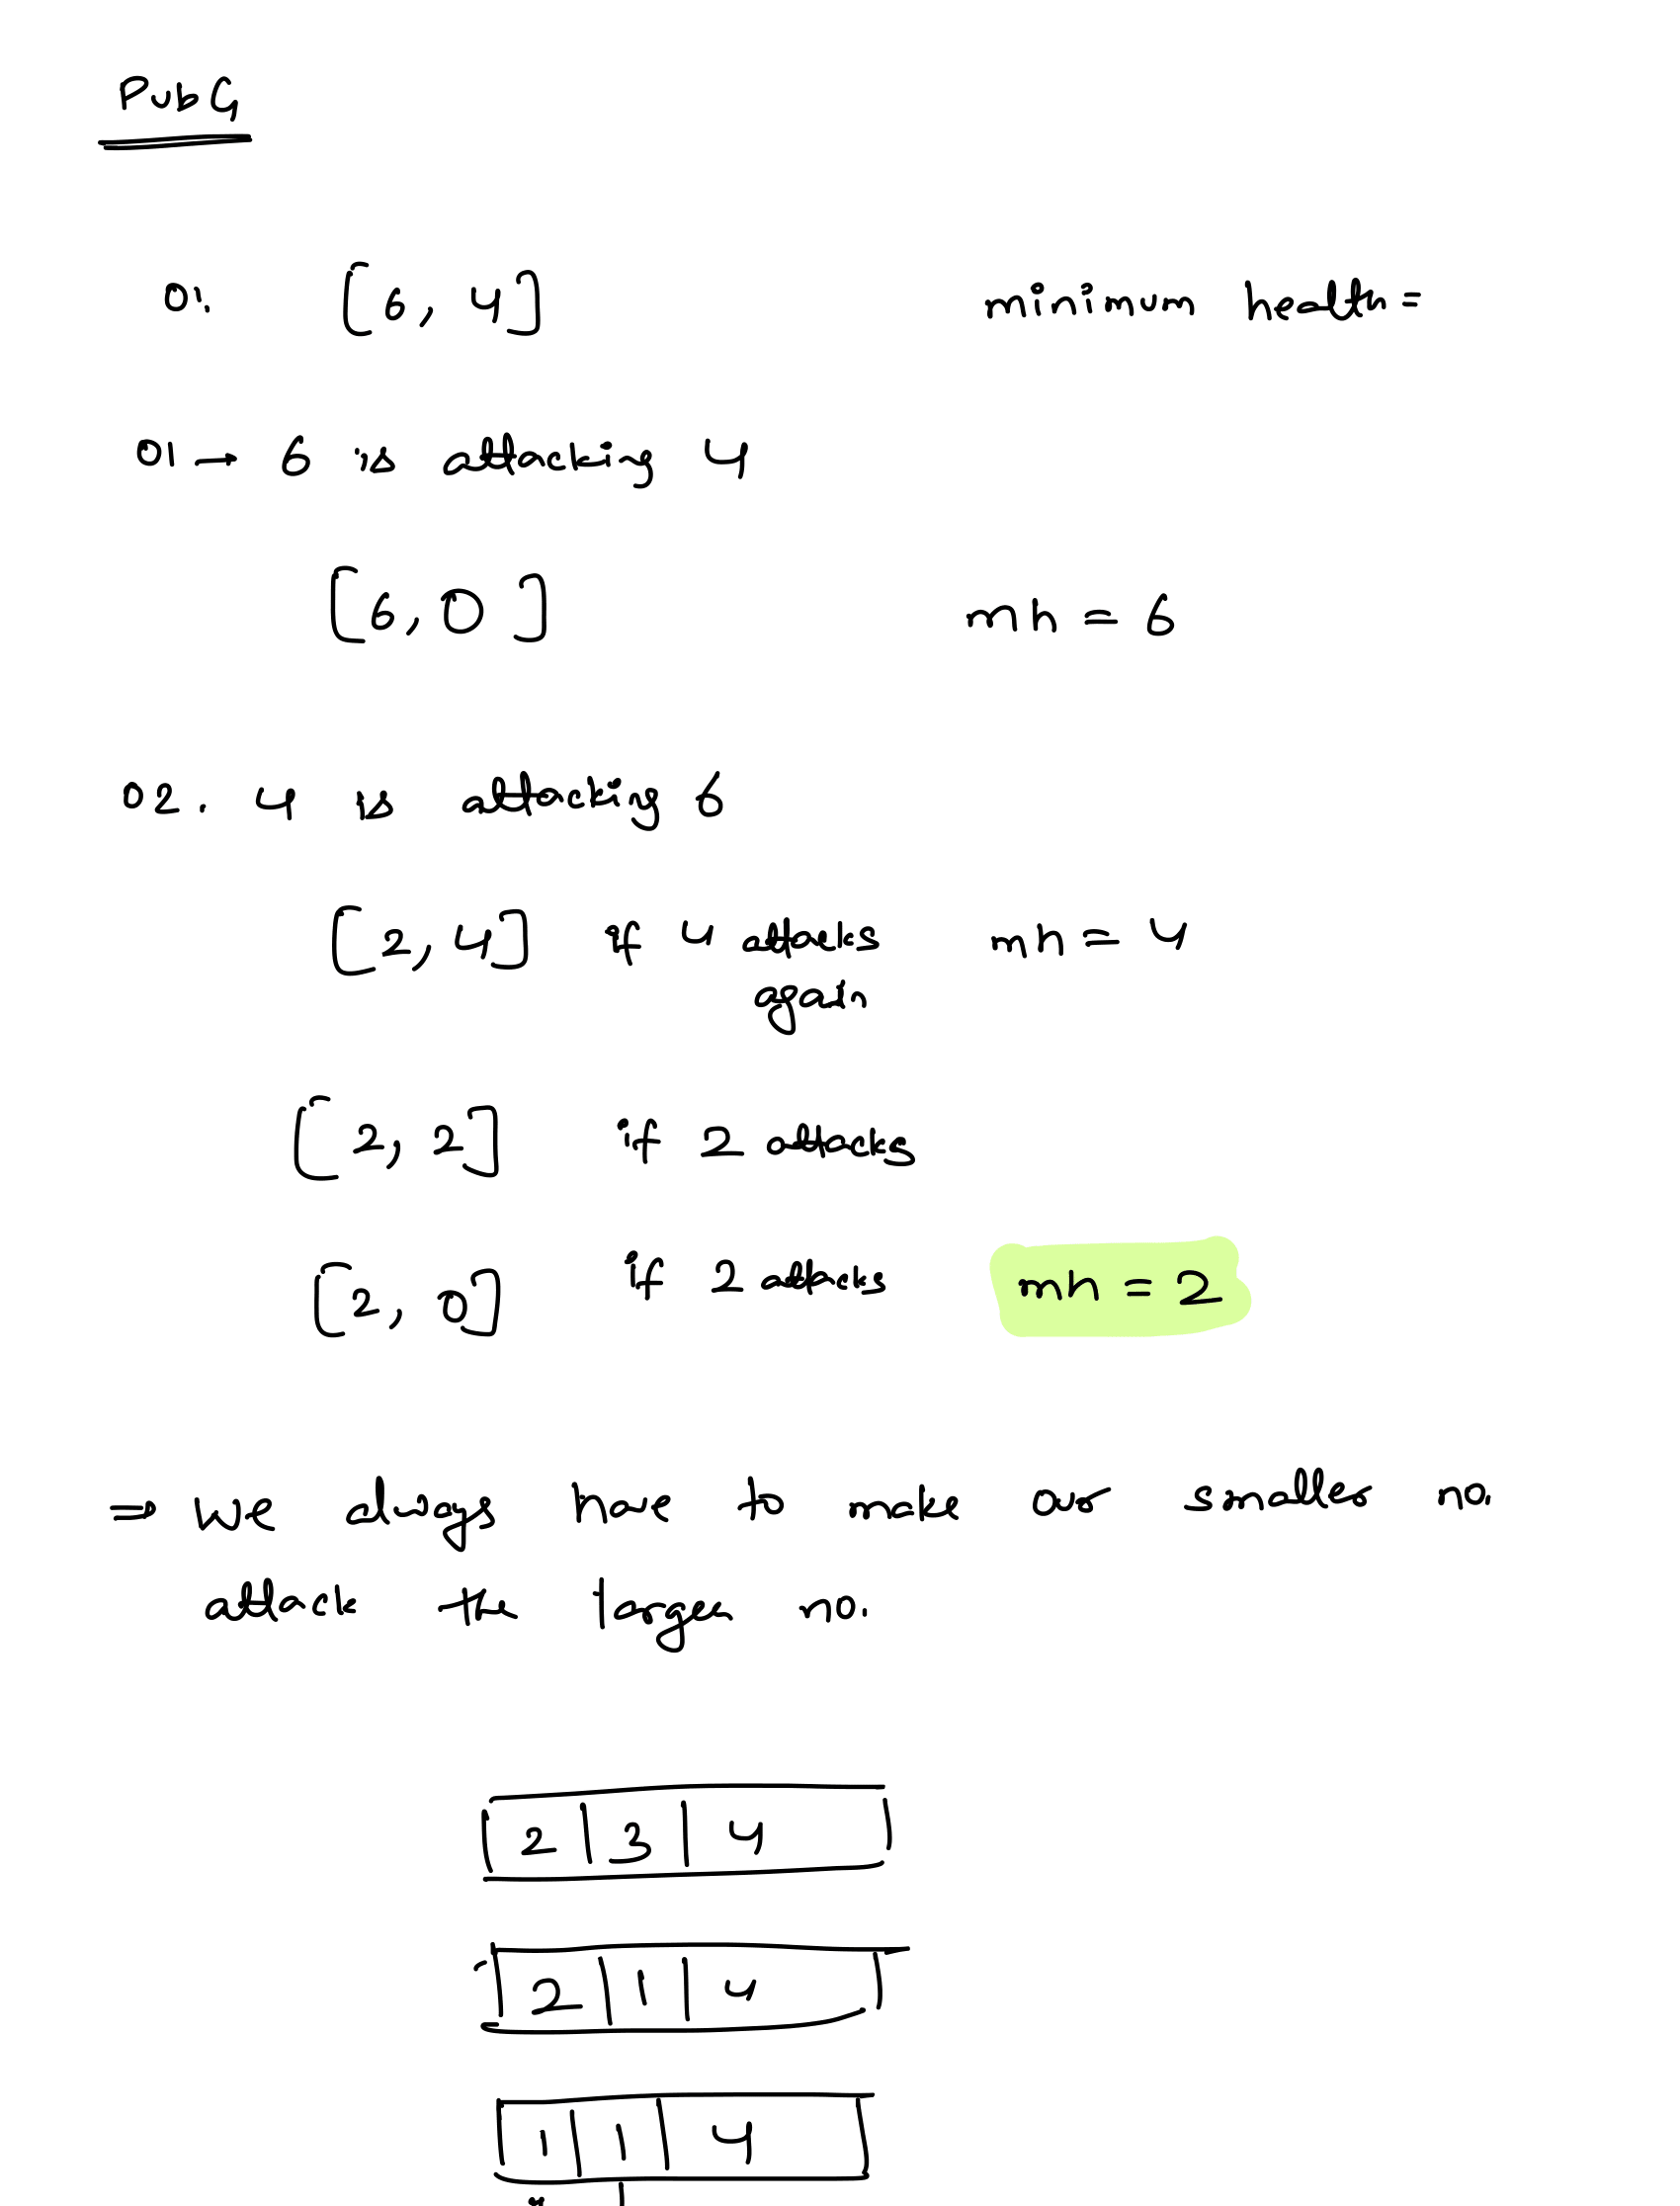 PubG
01. [6, 4] minimum health =
01 → 6 is attacking 4
[6, 0] mh = 6
02. 4 is attacking 6
[2, 4] if 4 attacks mh = 4
again
[2, 2] if 2 attacks
[2, 0] if 2 attacks mh = 2
⇒ We always have to make our smaller no.
attack the larger no.
2 | 3 | 4
2 | 1 | 4
1 | 1 | 4